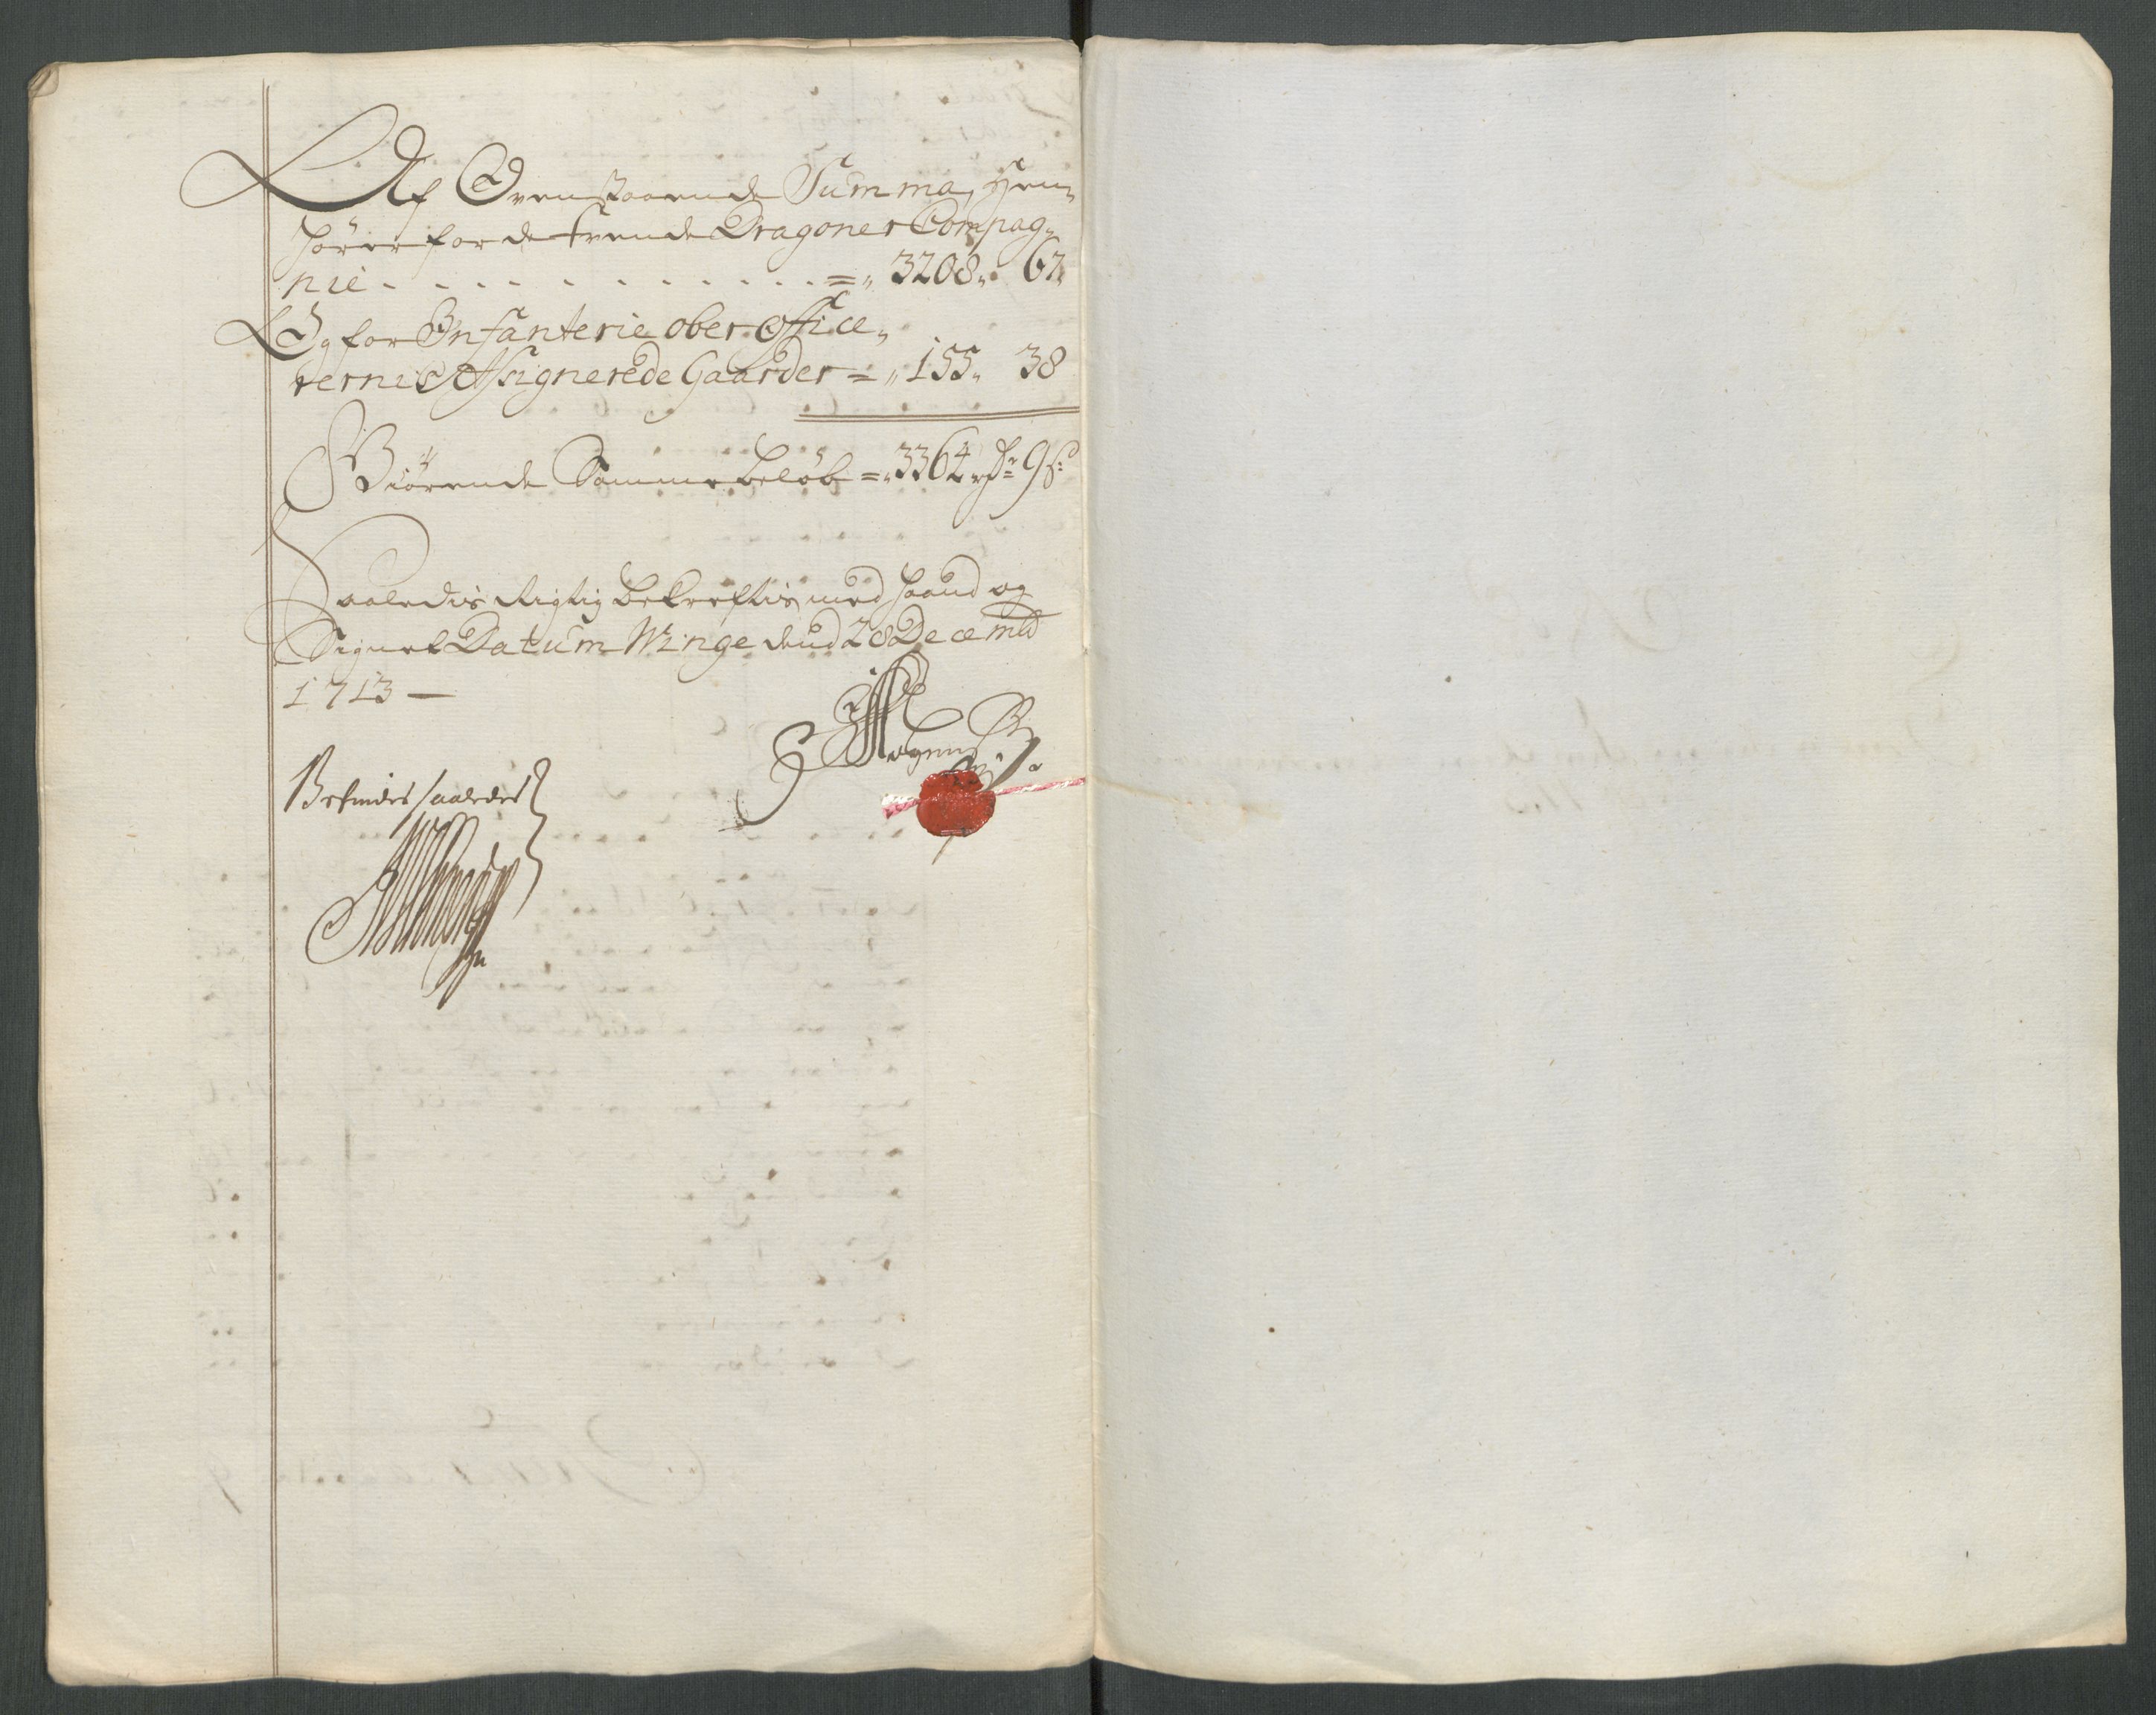 Af Ovenstaaende Summa, Hen,,
hörer for de trende Dragoner Compag,,
nie - - - - - - - - - =,, 3208,, 67,,
Og for Infanterie ober Office,,
rernis Assignerede Gaarder =,, 155,, 38
Giörende Samme beløb =,, 3364 rdr 9 s:
Saaledis Rigtig bekreftis med haand og
Signet Datum Winge dend 28 Decembr
1713 —
Befindes saaledes